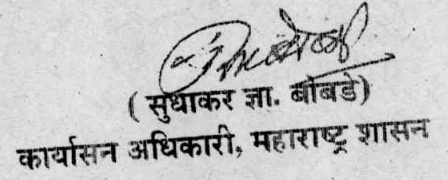 ( सुधाकर ज्ञा. बोबडे)
कार्यासन अधिकारी, महाराष्ट्र शासन